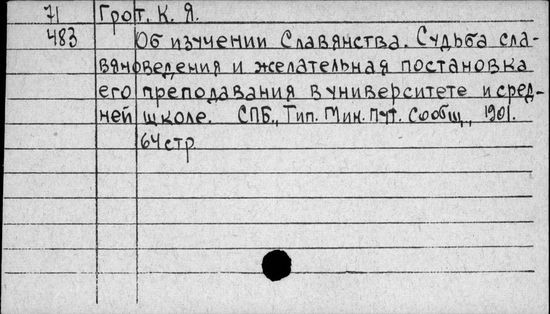 71 Грот, К. Я.
483 Об изучении Славянства. Судьба сла-
вяноведения и желательная постановка
его преподавания в университете и сред-
ней школе. СПБ., Тип. Мин. Пут. Сообщ., 1901.
64 стр